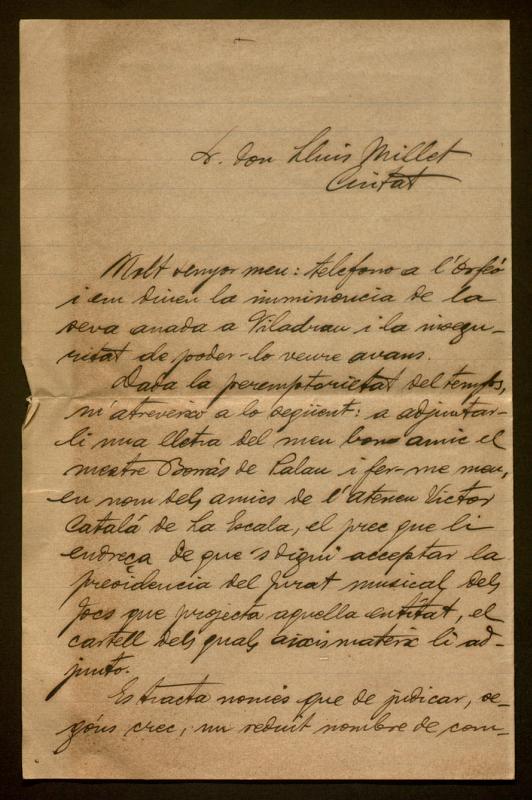 Sr. Don Lluis Millet
Ciutat
Molt senyor meu: telefono a l'Orfeó
i em diuen la imminencia de la
seva anada a Viladrau i la insegu-
ritat de poder-lo veure avans.
Dada la peremptorietat del temps,
m'atreveixo a lo següent: a adjuntar-
li una lletra del meu bon amic el
mestre Borrás de Palau i fer-me meu,
en nom dels amics de l'Ateneu Victor
Catalá de La Escala, el prec que li
endreça de que's digni acceptar la
presidencia del Jurat musical dels
Jocs que projecta aquella entitat, el
cartell dels quals aixismateix li ad-
junto.
Es tracta només que de judicar, se-
góns crec, un reduit nombre de com-